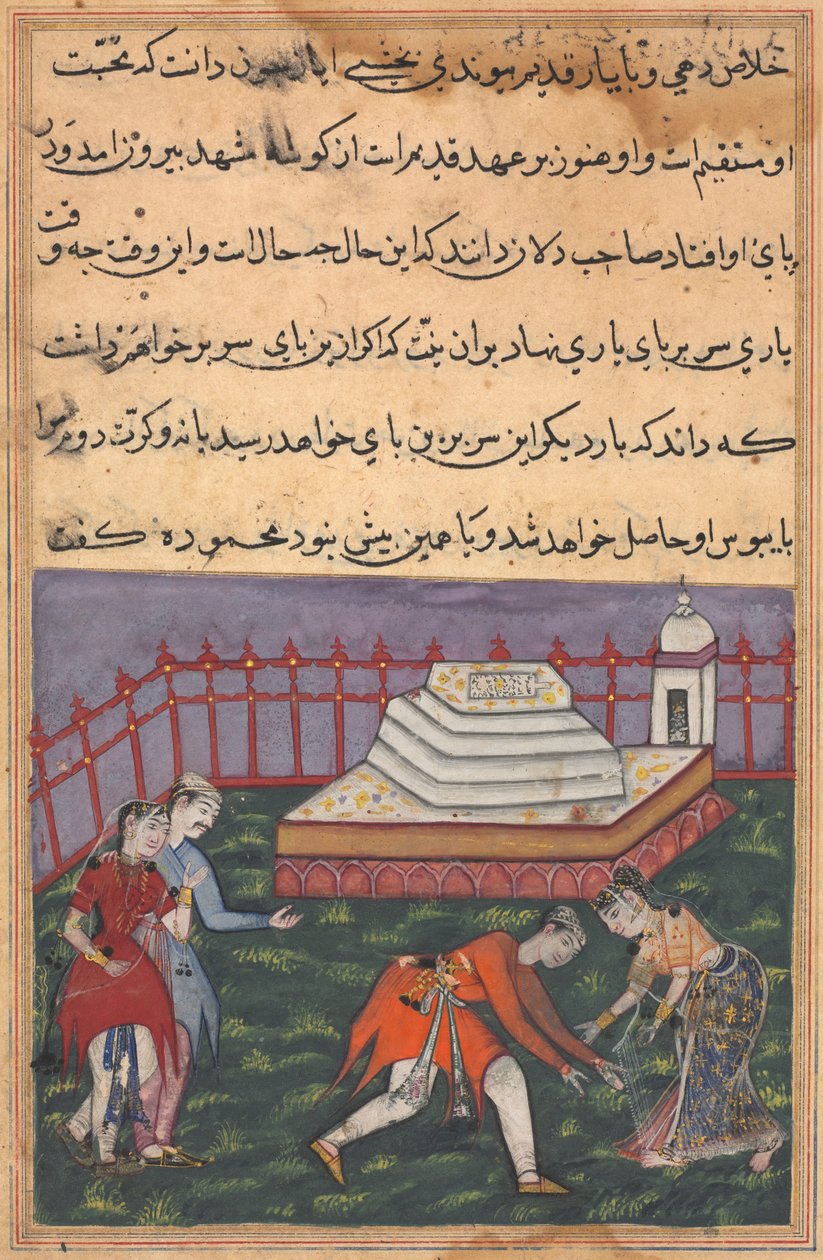 خلاص دهي و با يار قديم پيوندي بخشي اياز چون دانست كه محبّت
او مستقيم است و او هنوز بر عهد قديم است از كوشه مشهد بيرون امد و در
پاي او افتاد صاحب دلان دانند كه اين حال چه حال است و اين وقت چه وقت
ياري سر بر پاي ياري نهاد بران نيّت كه اكر ازين باي سر بر خواهم داشت
كه داند كه بار ديكر اين سر برين باي خواهد رسيد يا نه و كرّت دوم مرا
بايبوس او حاصل خواهد شد و يا همين بيش نبود محموده كفت